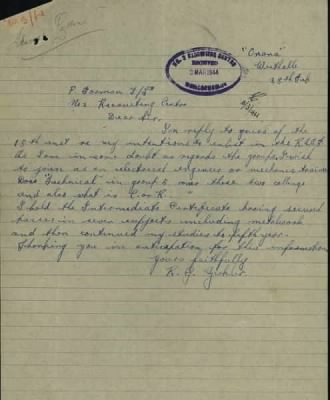 "Orana"
Westdale
28th Feb
RECEIVED
3 MAR 1944
F. Foreman F/Lt
No 2 Recruiting Centre
Dear Sir,
In reply to yours of the
18th inst re my intention to enlist in the R.A.A.F.
I am in some doubt as regards the groups I wish
to join as an electrical engineer or mechanic
Does Technical in group 5 mean these two callings
and also what is
I hold the Intermediate Certificate having secured
passes in seven subjects including metalwork
and then continued my studies to fifth year.
Thanking you in anticipation for this information
Yours faithfully
K. G.